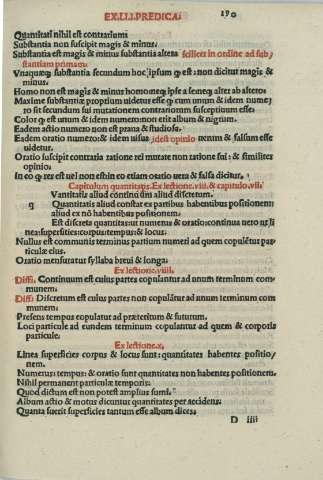 EX.LI.PREDICA.
190
Quantitati nihil est contrarium
Substantia non suscipit magis & minus.
Substantia est magis & minus substantia altera scilicet in ordine ad sub,
stantiam primam.
Vnaquæq; substantia secundum hoc ipsum q est: non dicitur magis &
minus.
Homo non est magis & minus homo neq; ipse a se neq; alter ab altero:
Maxime substantiæ proprium uidetur esse q cum unum & idem nume,
ro sit secundum sui mutationem contrariorum susceptiuum esse.
Color q est unum & idem numero: non erit album & nigrum.
Eadem actio numero non est praua & studiosa.
Eadem oratio numero: & idem uisus idest opinio uerum & falsum esse
uidetur.
Oratio suscipit contraria ratione rei mutatæ non ratione sui: & similiter
opinio.
In eo q res est uel non est: in eo etiam oratio uera & falsa dicitur.
Capitulum quantitatis. Ex lectione. viii. & capitulo. vii.
Vantitatis aliud continuum aliud discretum.
q Quantitatis aliud constat ex partibus habentibus positionem:
aliud ex nō habentibus positionem:
Est discreta quantitas: ut numerus & oratio: continua uero ut li
nea: superficies: corpus: tempus: & locus:
Nullus est communis terminus partium numeri ad quem copulētur par,
ticulæ eius.
Oratio mensuratur syllaba breui & longa:
Ex lectione. viiii.
Diffi. Continuum est cuius partes copulantur ad unum terminum com
munem.
Diffi Discretum est cuius partes non copulātur ad unum terminum com
munem.
Præsens tempus copulatur ad præteritum & futurum.
Loci particulæ ad eundem terminum copulantur ad quem & corporis
particulæ.
Ex lectione. x,
Linea superficies corpus & locus sunt: quantitates habentes positio,
nem.
Numerus: tempus: & oratio sunt quantitates non habentes positionem.
Nihil permanent particulæ temporis:
Quod dictum est non potest amplius sumi.
Album actio & motus dicuntur quantitates per accidens.
Quanta fuerit superficies tantum esse album dices:
D iiii